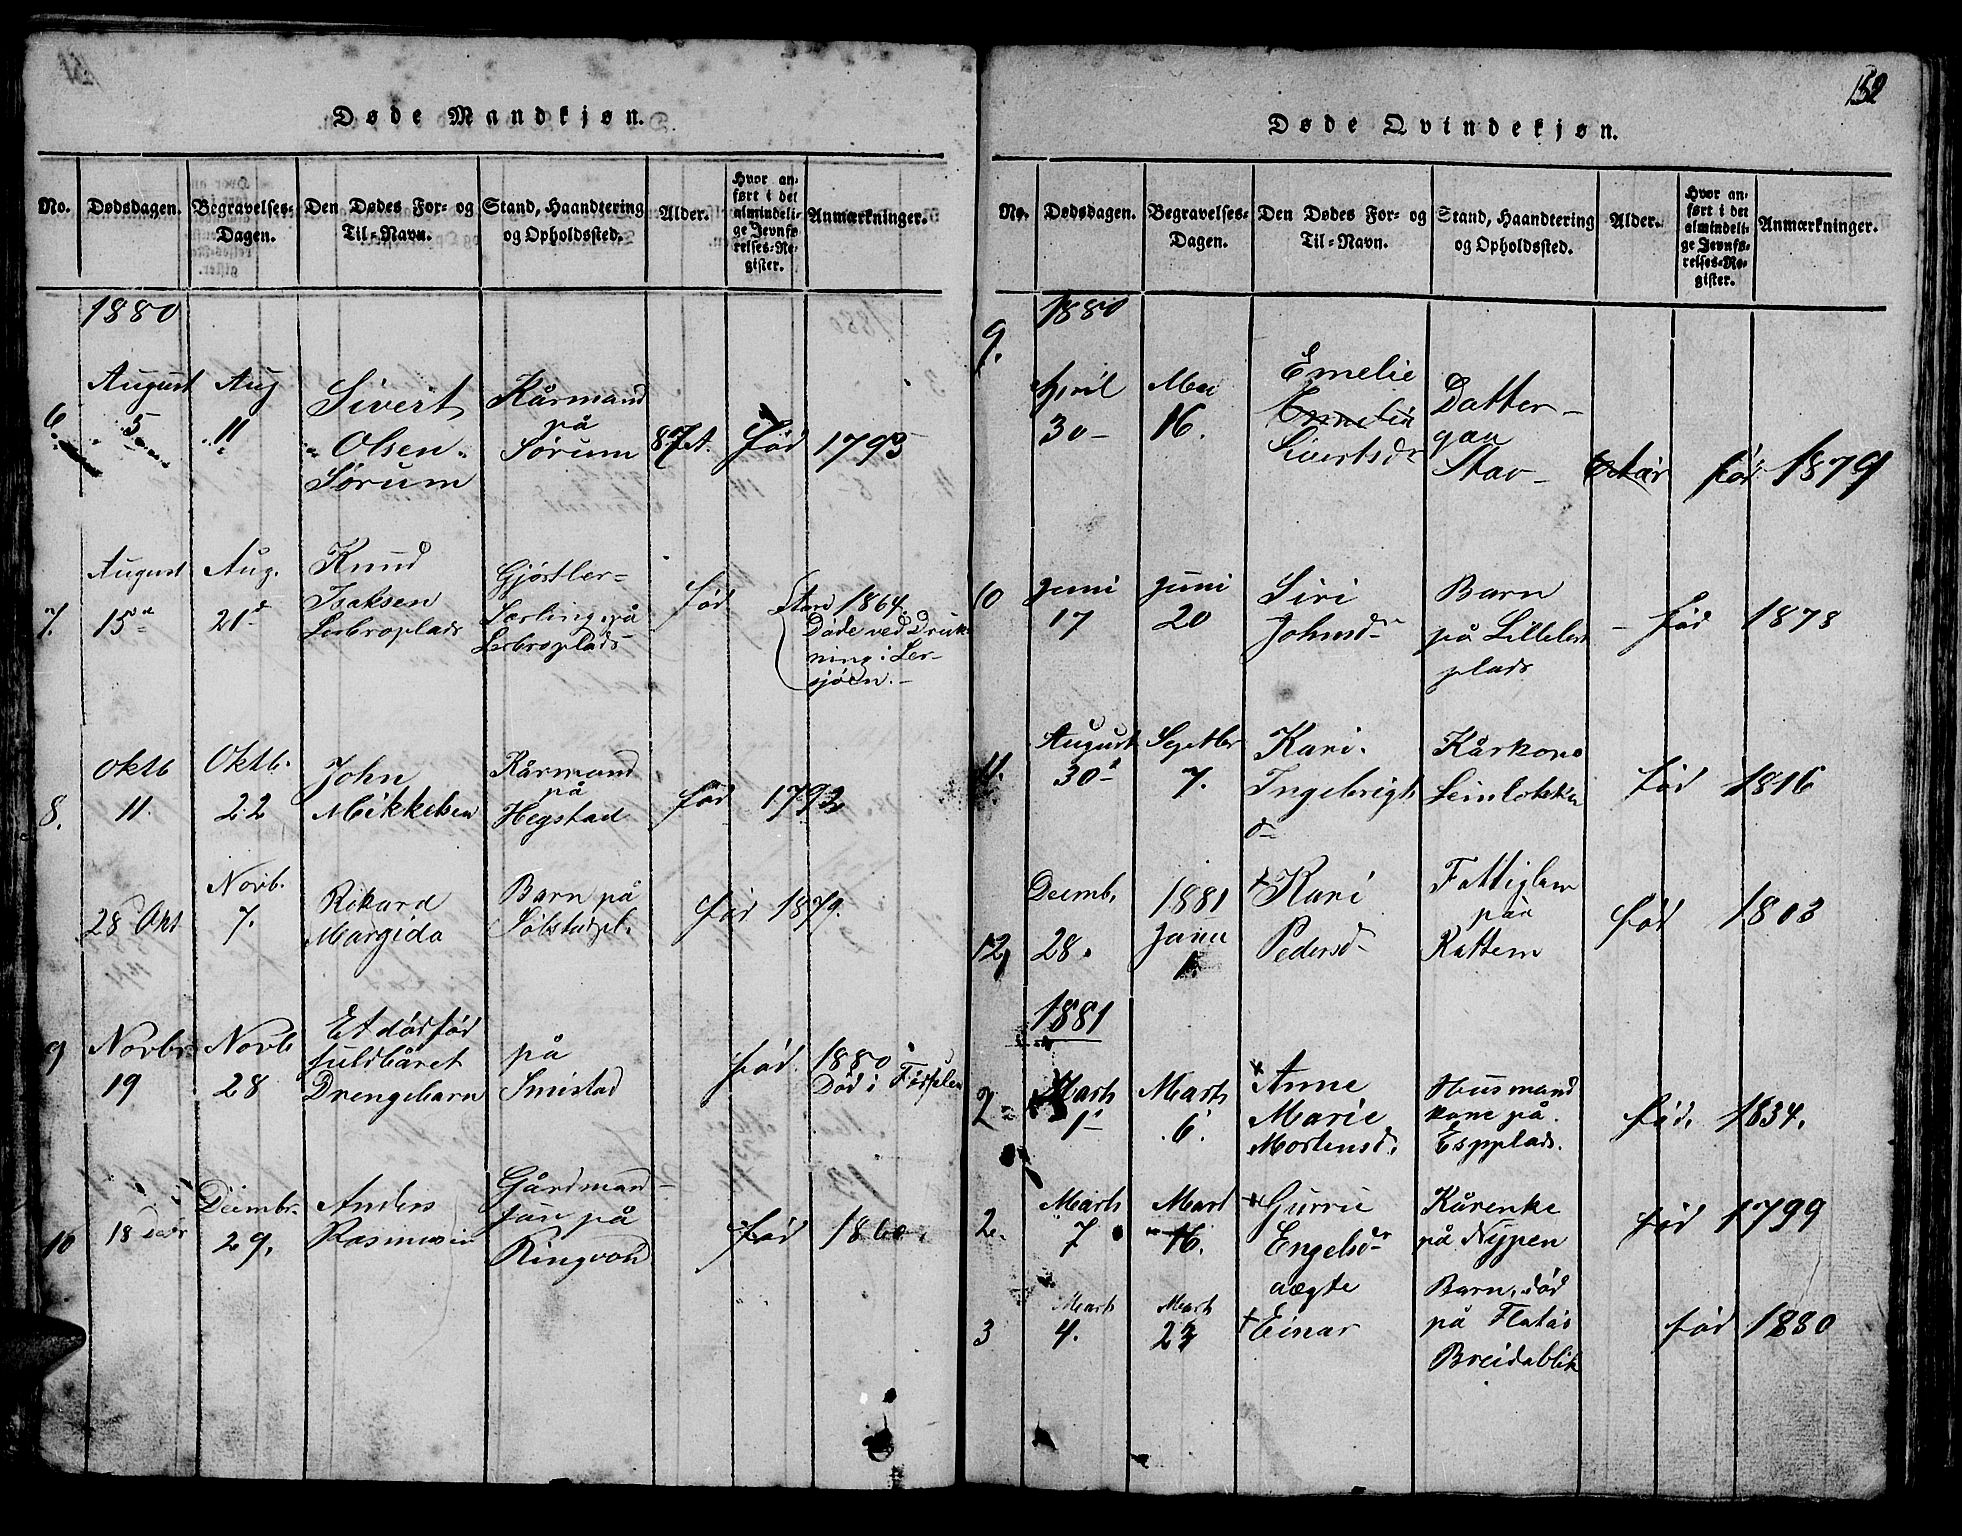 Døde Mandkjøn.
No. Dødsdagen. Begravelses-Dagen. Den Dødes For- og Til-Navn. Stand, Haandtering og Opholdssted. Alder. Hvor anført i det almindelige Jevnførelses-Register. Anmærkninger.
1880
6. August 5 Aug 11 Sivert Olsen Sørum Kårmand på Sørum 87 et. Fød 1793
7. August 15de 21de Aug. Knud Isaksen Lerbroplads Gjørtler-Lærling på Lerbroplads Fød 1864
Døde ved Drukning i Lersjøen.
8. Oktb 11. Oktb. 22 John Mikkelsen Kårmand på Hegstad fød 1792
28 Okt Novb. 7. Rikard Margido Barn på Sølstadpl. fød 1879.
9 Novbr 19 Novb 28 Et dødfød fuldbåret Drengebarn på Smistad fød 1880 Død i Fødselen
10 18 Decbr Decmbr. 29. Anders Rasmussen Gårdmand-søn på Ringvold fød 1860.
152
Døde Qvindekjøn.
No. Dødsdagen. Begravelses-Dagen. Den Dødes For- og Til-Navn. Stand, Haandtering og Opholdssted. Alder. Hvor anført i det almindelige Jevnførelses-Register. Anmærkninger.
1880
9. April 30 Mai 16. Emelie Sivertsdr Datter gaa Stav fød 1879
10 Juni 17 Juni 20 Siri Johnsdr Barn på Lilleler plads Fød 1878
11. August 30 Septbr 7. Kari Ingebrigtsd Kårkone Leinlokken Fød 1816
12 Decmb. 28. 1881 Janu 1. Kari Pedersd Fattiglem på Kattem fød 1803
1881
2 Marts 1 Marts 6. Anne Marie Mortensd. Husmandkone på Espplads. fød. 1834.
2. Marts 7 Mart 16. Gurrie Engelsdr Kårenke på Nypen fød 1799
3 Marts 4. Marts 23 aegte Einar Barn, død på Flatås Breidablik fød 1880